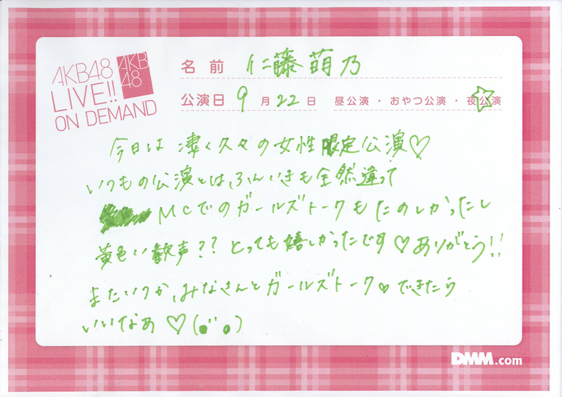 AKB48
LIVE!!
ON DEMAND
AKB
48
名前 仁藤萌乃
公演日 9月22日 昼公演・おやつ公演・夜公演
今日は凄く久々の女性限定公演♡
いつもの公演とは、ふんいきも全然違って
MCでのガールズトークもたのしかったし
黄色い歓声??とっても嬉しかったです♡ありがとう!!
またいつか、みなさんとガールズトーク♥できたら
いいなぁ♡(●¨●)
DMM.com